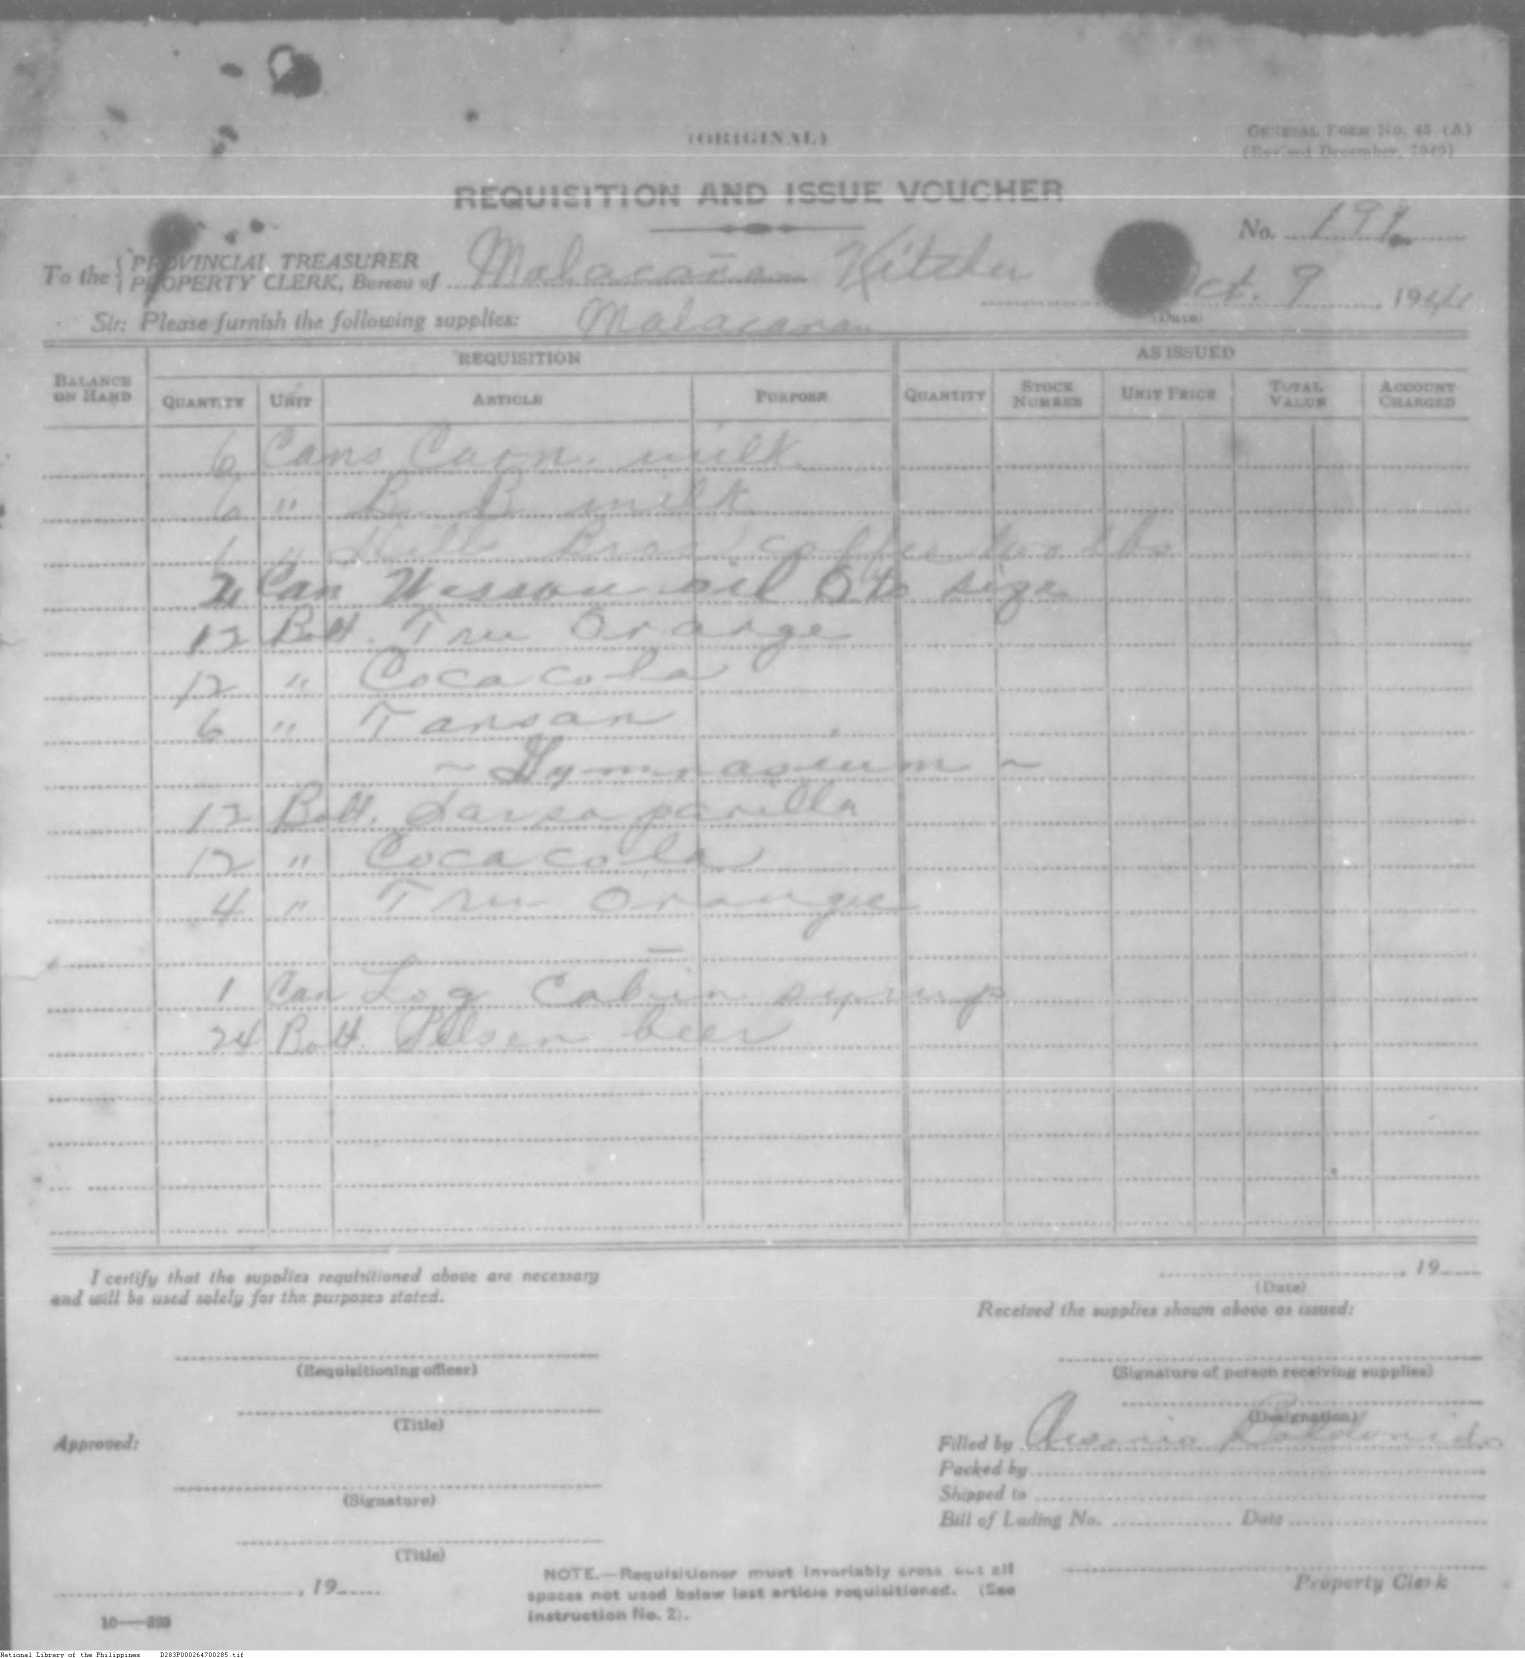 (ORIGINAL)
GENERAL FORM NO. 45 (A)
(Revised December, 1940)
REQUISITION AND ISSUE VOUCHER
No. 197
To the { PROVINCIAL TREASURER
PROPERTY CLERK, Bureau of Malacañan Kitchen
Oct. 9, 1944
(Date)
Sir: Please furnish the following supplies: Malacanan
REQUISITION AS ISSUED
BALANCE ON HAND QUANTITY UNIT ARTICLE PURPOSE QUANTITY STOCK NUMBER UNIT PRICE TOTAL VALUE ACCOUNT CHARGED
6 Cans milk
6 " B. B. milk
" Hills Bros. coffee lbs
2 Can Wesson oil size
12 Bott. Tru Orange
12 " Coca cola
6 " Tansan
~ Gymnasium ~
12 Bott. Sarsaparilla
12 " Coca cola
4 " Tru Orange
1 Can Log Cabin syrup
24 Bott. Pilsen beer
I certify that the supplies requisitioned above are necessary
and will be used solely for the purposes stated.
, 19
(Date)
Received the supplies shown above as issued:
(Requisitioning officer)
(Signature of person receiving supplies)
(Title)
(Designation)
Approved:
Filled by Arsenio Baldonido
Packed by
(Signature)
Shipped to
Bill of Lading No. Date
(Title)
, 19
NOTE.—Requisitioner must invariably cross out all
spaces not used below last article requisitioned. (See
instruction No. 2).
Property Clerk
National Library of the Philippines D283P000264700285.tif